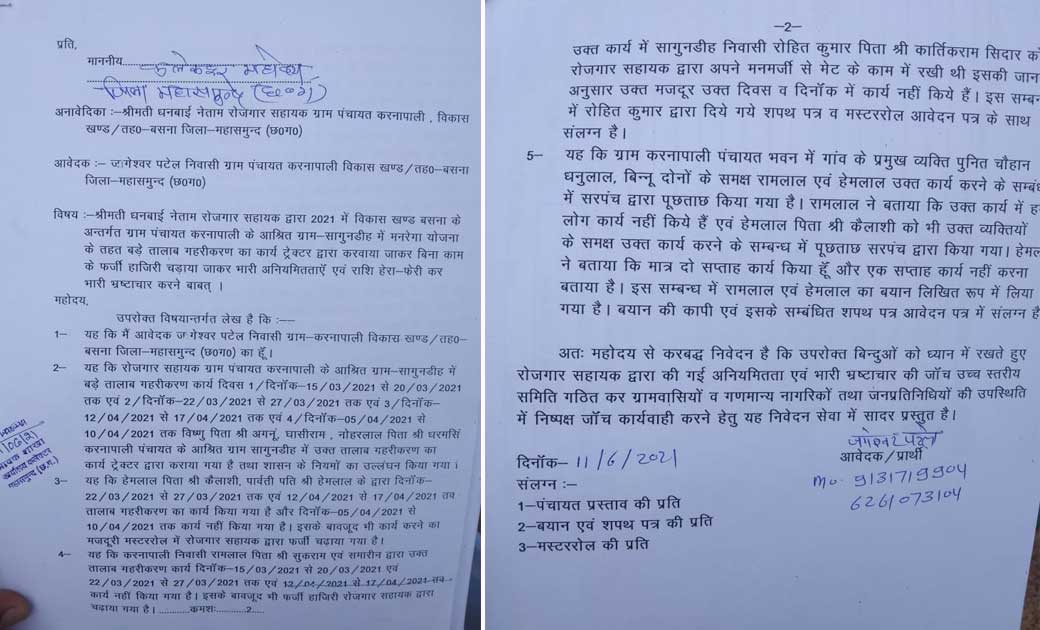 प्रति,
माननीय............कलेक्टर महोदय
जिला महासमुन्द (छ०ग०)
अनावेदिका :–श्रीमती धनबाई नेताम रोजगार सहायक ग्राम पंचायत करनापाली , विकास
खण्ड/तह०–बसना जिला–महासमुन्द (छ०ग०)
आवेदक :– जागेश्वर पटेल निवासी ग्राम पंचायत करनापाली विकास खण्ड/तह०–बसना
जिला–महासमुन्द (छ०ग०)
विषय :–श्रीमती धनबाई नेताम रोजगार सहायक द्वारा 2021 में विकास खण्ड बसना के
अन्तर्गत ग्राम पंचायत करनापाली के आश्रित ग्राम–सागुनडीह में मनरेगा योजना
के तहत बड़े तालाब गहरीकरण का कार्य ट्रेक्टर द्वारा करवाया जाकर बिना काम
के फर्जी हाजिरी चड़ाया जाकर भारी अनियमितताऐं एवं राशि हेरा–फेरी कर
भारी भ्रष्टाचार करने बाबत् ।
महोदय,
उपरोक्त विषयान्तर्गत लेख है कि :––
1– यह कि मैं आवेदक जागेश्वर पटेल निवासी ग्राम–करनापाली विकास खण्ड/तह०–
बसना जिला–महासमुन्द (छ०ग०) का हूँ।
2– यह कि रोजगार सहायक ग्राम पंचायत करनापाली के आश्रित ग्राम–सागुनडीह में
बड़े तालाब गहरीकरण कार्य दिवस 1/दिनॉक–15/03/2021 से 20/03/2021
तक एवं 2/दिनॉक–22/03/2021 से 27/03/2021 तक एवं 3/दिनॉक–
12/04/2021 से 17/04/2021 तक एवं 4/दिनॉक–05/04/2021 से
10/04/2021 तक विष्णु पिता श्री अगनूं, घासीराम , नोहरलाल पिता श्री धरमसिं
करनापाली पंचायत के आश्रित ग्राम सागुनडीह में उक्त तालाब गहरीकरण का
कार्य ट्रेक्टर द्वारा कराया गया है तथा शासन के नियमों का उल्लंघन किया गया ।
3– यह कि हेमलाल पिता श्री कैलाशी, पार्वती पति श्री हेमलाल के द्वारा दिनॉक–
22/03/2021 से 27/03/2021 तक एवं 12/04/2021 से 17/04/2021 तव
तालाब गहरीकरण का कार्य किया गया है और दिनॉक–05/04/2021 से
10/04/2021 तक कार्य नहीं किया गया है। इसके बावजूद भी कार्य करने का
मजदूरी मस्टररोल में रोजगार सहायक द्वारा फर्जी चढ़ाया गया है।
4– यह कि करनापाली निवासी रामलाल पिता श्री सुकराम एवं समारीन द्वारा उक्त
तालाब गहरीकरण कार्य दिनॉक–15/03/2021 से 20/03/2021 एवं
22/03/2021 से 27/03/2021 तक एवं 12/04/2021 से 17/04/2021 तक
कार्य नहीं किया गया है। इसके बावजूद भी फर्जी हाजिरी रोजगार सहायक द्वारा
चढ़ाया गया है। ...........कमशः..........2.....
महासमुन्द (छ.ग.)
–2–
उक्त कार्य में सागुनडीह निवासी रोहित कुमार पिता श्री कार्तिकराम सिदार को
रोजगार सहायक द्वारा अपने मनमर्जी से मेट के काम में रखी थी इसकी जान
अनुसार उक्त मजदूर उक्त दिवस व दिनॉक में कार्य नहीं किये हैं। इस सम्बन
में रोहित कुमार द्वारा दिये गये शपथ पत्र व मस्टररोल आवेदन पत्र के साथ
संलग्न है।
5– यह कि ग्राम करनापाली पंचायत भवन में गांव के प्रमुख व्यक्ति पुनित चौहान
धनुलाल, बिन्नू दोनों के समक्ष रामलाल एवं हेमलाल उक्त कार्य करने के सम्बंध
में सरपंच द्वारा पूछताछ किया गया है। रामलाल ने बताया कि उक्त कार्य में ह
लोग कार्य नहीं किये हैं एवं हेमलाल पिता श्री कैलाशी को भी उक्त व्यक्तियों
के समक्ष उक्त कार्य करने के सम्बन्ध में पूछताछ सरपंच द्वारा किया गया। हेमल
ने बताया कि मात्र दो सप्ताह कार्य किया हूँ और एक सप्ताह कार्य नहीं करना
बताया है। इस सम्बन्ध में रामलाल एवं हेमलाल का बयान लिखित रूप में लिया
गया है। बयान की कापी एवं इसके सम्बंधित शपथ पत्र आवेदन पत्र में संलग्न है
अतः महोदय से करबद्ध निवेदन है कि उपरोक्त बिन्दुओं को ध्यान में रखते हुए
रोजगार सहायक द्वारा की गई अनियमितता एवं भारी भ्रष्टाचार की जॉच उच्च स्तरीय
समिति गठित कर ग्रामवासियों व गणमान्य नागरिकों तथा जनप्रतिनिधियों की उपस्थिति
में निष्पक्ष जॉच कार्यवाही करने हेतु यह निवेदन सेवा में सादर प्रस्तुत है।
जागेश्वर पटेल
दिनॉक– 11/6/2021 आवेदक/प्रार्थी
mo. 9131719904
6261073104
संलग्न :–
1–पंचायत प्रस्ताव की प्रति
2–बयान एवं शपथ पत्र की प्रति
3–मस्टररोल की प्रति